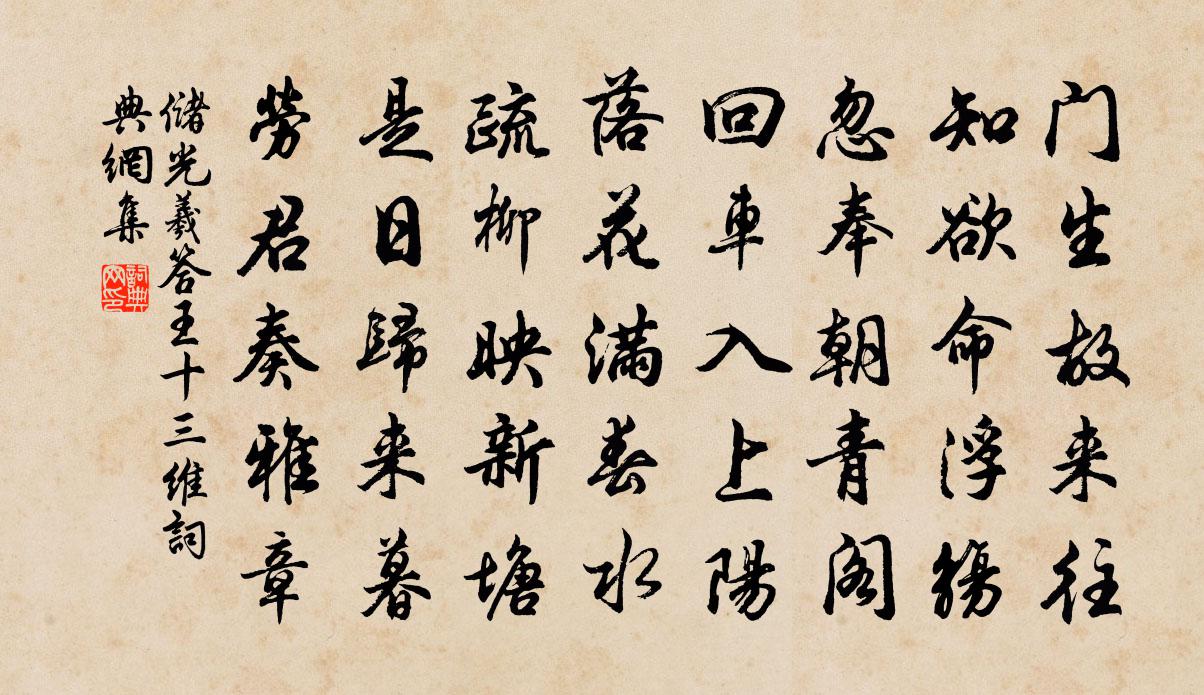 门生故来往
知欲命浮觞
忽奉朝青阁
回車入上陽
落花满春水
疏柳映新塘
是日歸来暮
勞君奏雅章
儲光羲答王十三維詞
典網集
詞典
网印